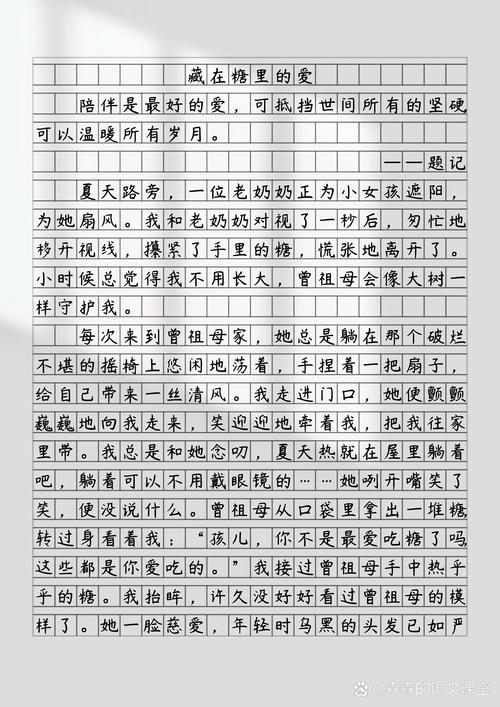 藏在糖里的爱
陪伴是最好的爱，可抵挡世间所有的坚硬
可以温暖所有岁月。
——题记
夏天路旁，一位老奶奶正为小女孩遮阳，
为她扇风。我和老奶奶对视了一秒后，匆忙地
移开视线，攥紧了手里的糖，慌张地离开了。
小时候总觉得我不用长大，曾祖母会像大树一
样守护我。
每次来到曾祖母家，她总是躺在那个破烂
不堪的摇椅上悠闲地荡着，手捏着一把扇子，
给自己带来一丝清风。我走进门口，她便颤颤
巍巍地向我走来，笑迎迎地牵着我，把我往家
里带。我总是和她念叨，夏天热就在屋里躺着
吧，躺着可以不用戴眼镜的……她咧开嘴笑了
笑，便没说什么。曾祖母从口袋里拿出一堆糖
转过身看着我：“孩儿，你不是最爱吃糖了吗
这些都是你爱吃的。”我接过曾祖母手中热乎
乎的糖。我抬眸，许久没好好看过曾祖母的模
样了。她一脸慈爱，年轻时乌黑的头发已如严
@森森的语文课堂